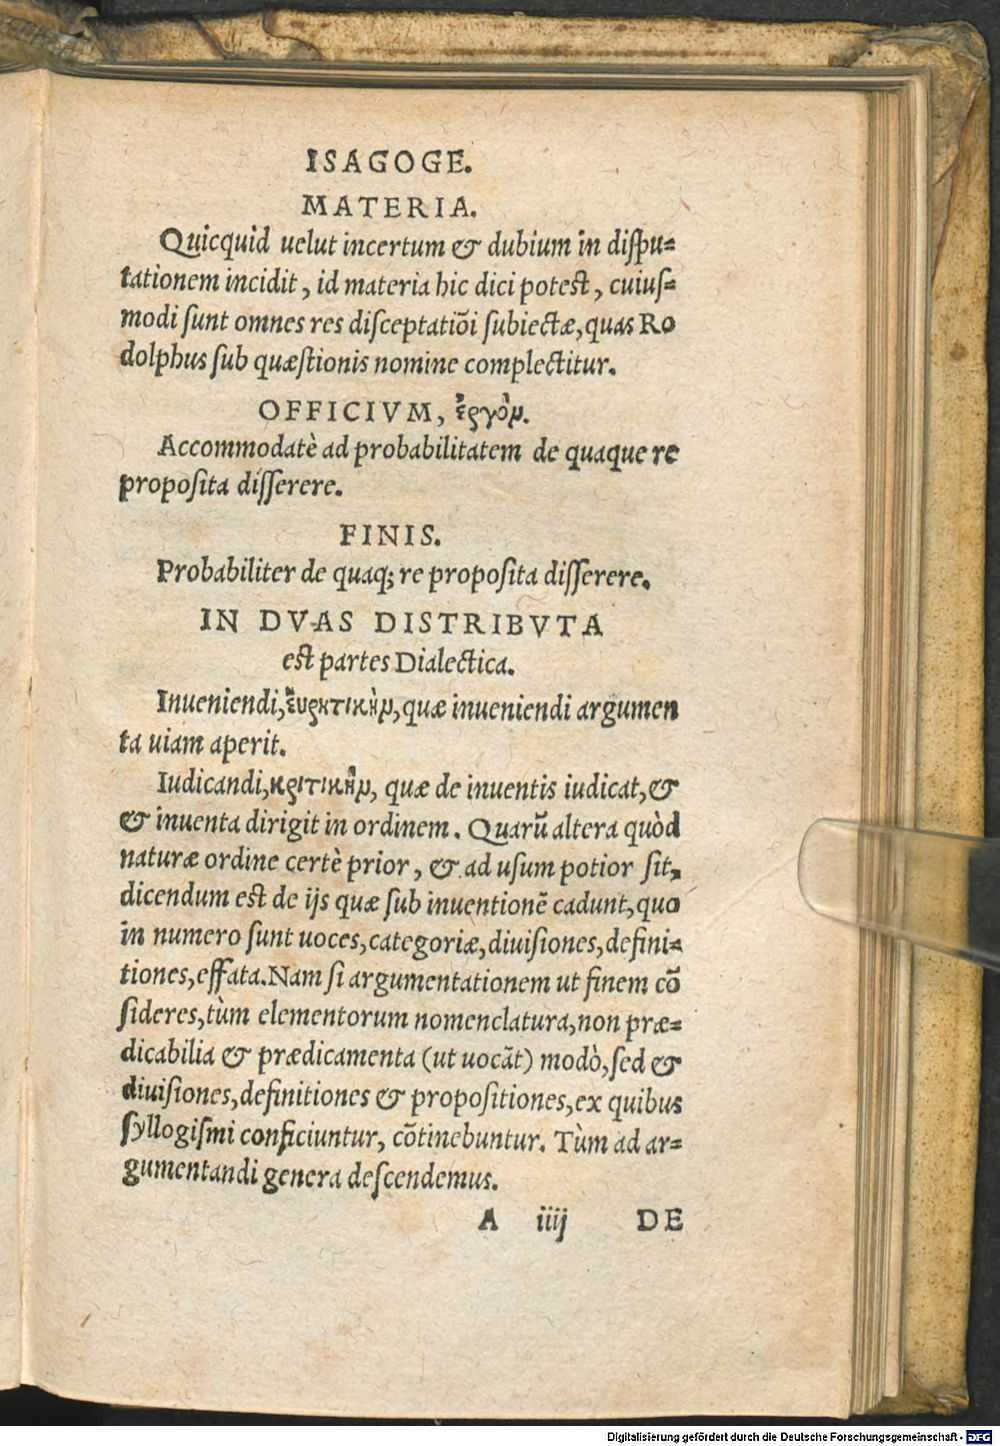 ISAGOGE.
MATERIA.
Quicquid uelut incertum & dubium in dispu-
tationem incidit, id materia hic dici potest, cuius-
modi sunt omnes res disceptatiōi subiectæ, quas Ro
dolphus sub quæstionis nomine complectitur.
OFFICIVM, ἔργὸν.
Accommodatè ad probabilitatem de quaque re
proposita disserere.
FINIS.
Probabiliter de quaq; re proposita disserere.
IN DVAS DISTRIBVTA
est partes Dialectica.
Inueniendi, ἑυρητικὴν, quæ inueniendi argumen
ta uiam aperit.
Iudicandi, κριτικὴν, quæ de inuentis iudicat, &
& inuenta dirigit in ordinem. Quarū altera quòd
naturæ ordine certè prior, & ad usum potior sit,
dicendum est de ijs quæ sub inuentionē cadunt, quo
in numero sunt uoces, categoriæ, diuisiones, defini-
tiones, effata. Nam si argumentationem ut finem cō
sideres, tùm elementorum nomenclatura, non præ-
dicabilia & prædicamenta (ut uocāt) modò, sed &
diuisiones, definitiones & propositiones, ex quibus
syllogismi conficiuntur, cōtinebuntur. Tùm ad ar-
gumentandi genera descendemus.
A iiij DE
Digitalisierung gefördert durch die Deutsche Forschungsgemeinschaft - DFG